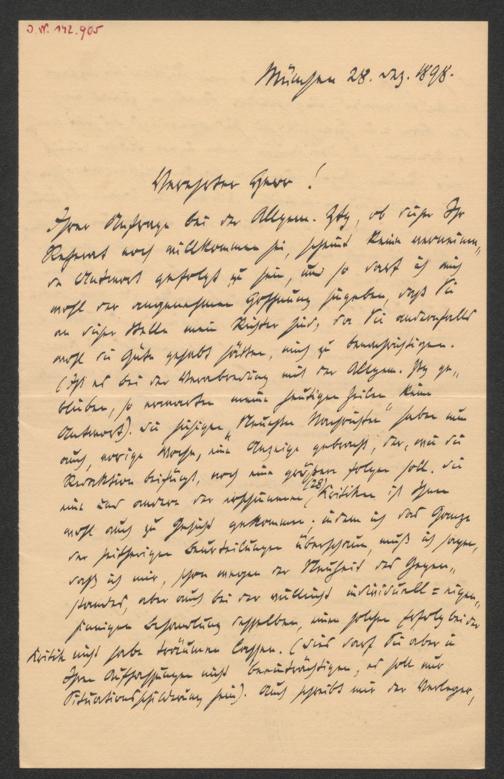 J.N. 142.905
München 28. Dez. 1898.
Verehrter Herr!
Ihrer Anfrage bei der Allgem. Ztg, ob dieser Ihr
Referat noch willkommen sei, scheint keine verneinen„
de Antwort gefolgt zu sein, und so darf ich mich
wohl der angenehmen Hoffnung hingeben, daß Sie
an dieser Stelle mein Richter sind, da Sie andernfalls
wohl die Güte gehabt hätten, mich zu benachrichtigen.
(Ist es bei der Verabredung mit der Allgem. Ztg ge„
blieben, so erwarten meine heutigen Zeilen keine
Antwort). Die hiesigen „Neuesten Nachrichten" haben nun
auch, vorige Woche, eine Anzeige gebracht, der, wie die
Redaktion beifügt, noch eine größere folgen soll. Die
eine und andere der erschienenen (28) Kritiken ist Ihnen
wohl auch zu Gesicht gekommen; indem ich das Ganze
der seitherigen Beurteilungen überschaue, muß ich sagen,
daß ich mir, schon wegen der Neuheit des Gegen„
standes, aber auch bei der vielleicht individuell=eigen„
sinnigen Behandlung desselben, einen solchen Erfolg bei der
Kritik nicht habe träumen lassen. (Dies darf Sie aber in
Ihren Auffassungen nicht beeinträchtigen, es soll nur
Situationsschilderung sein). Auch schreibt mir der Verleger,